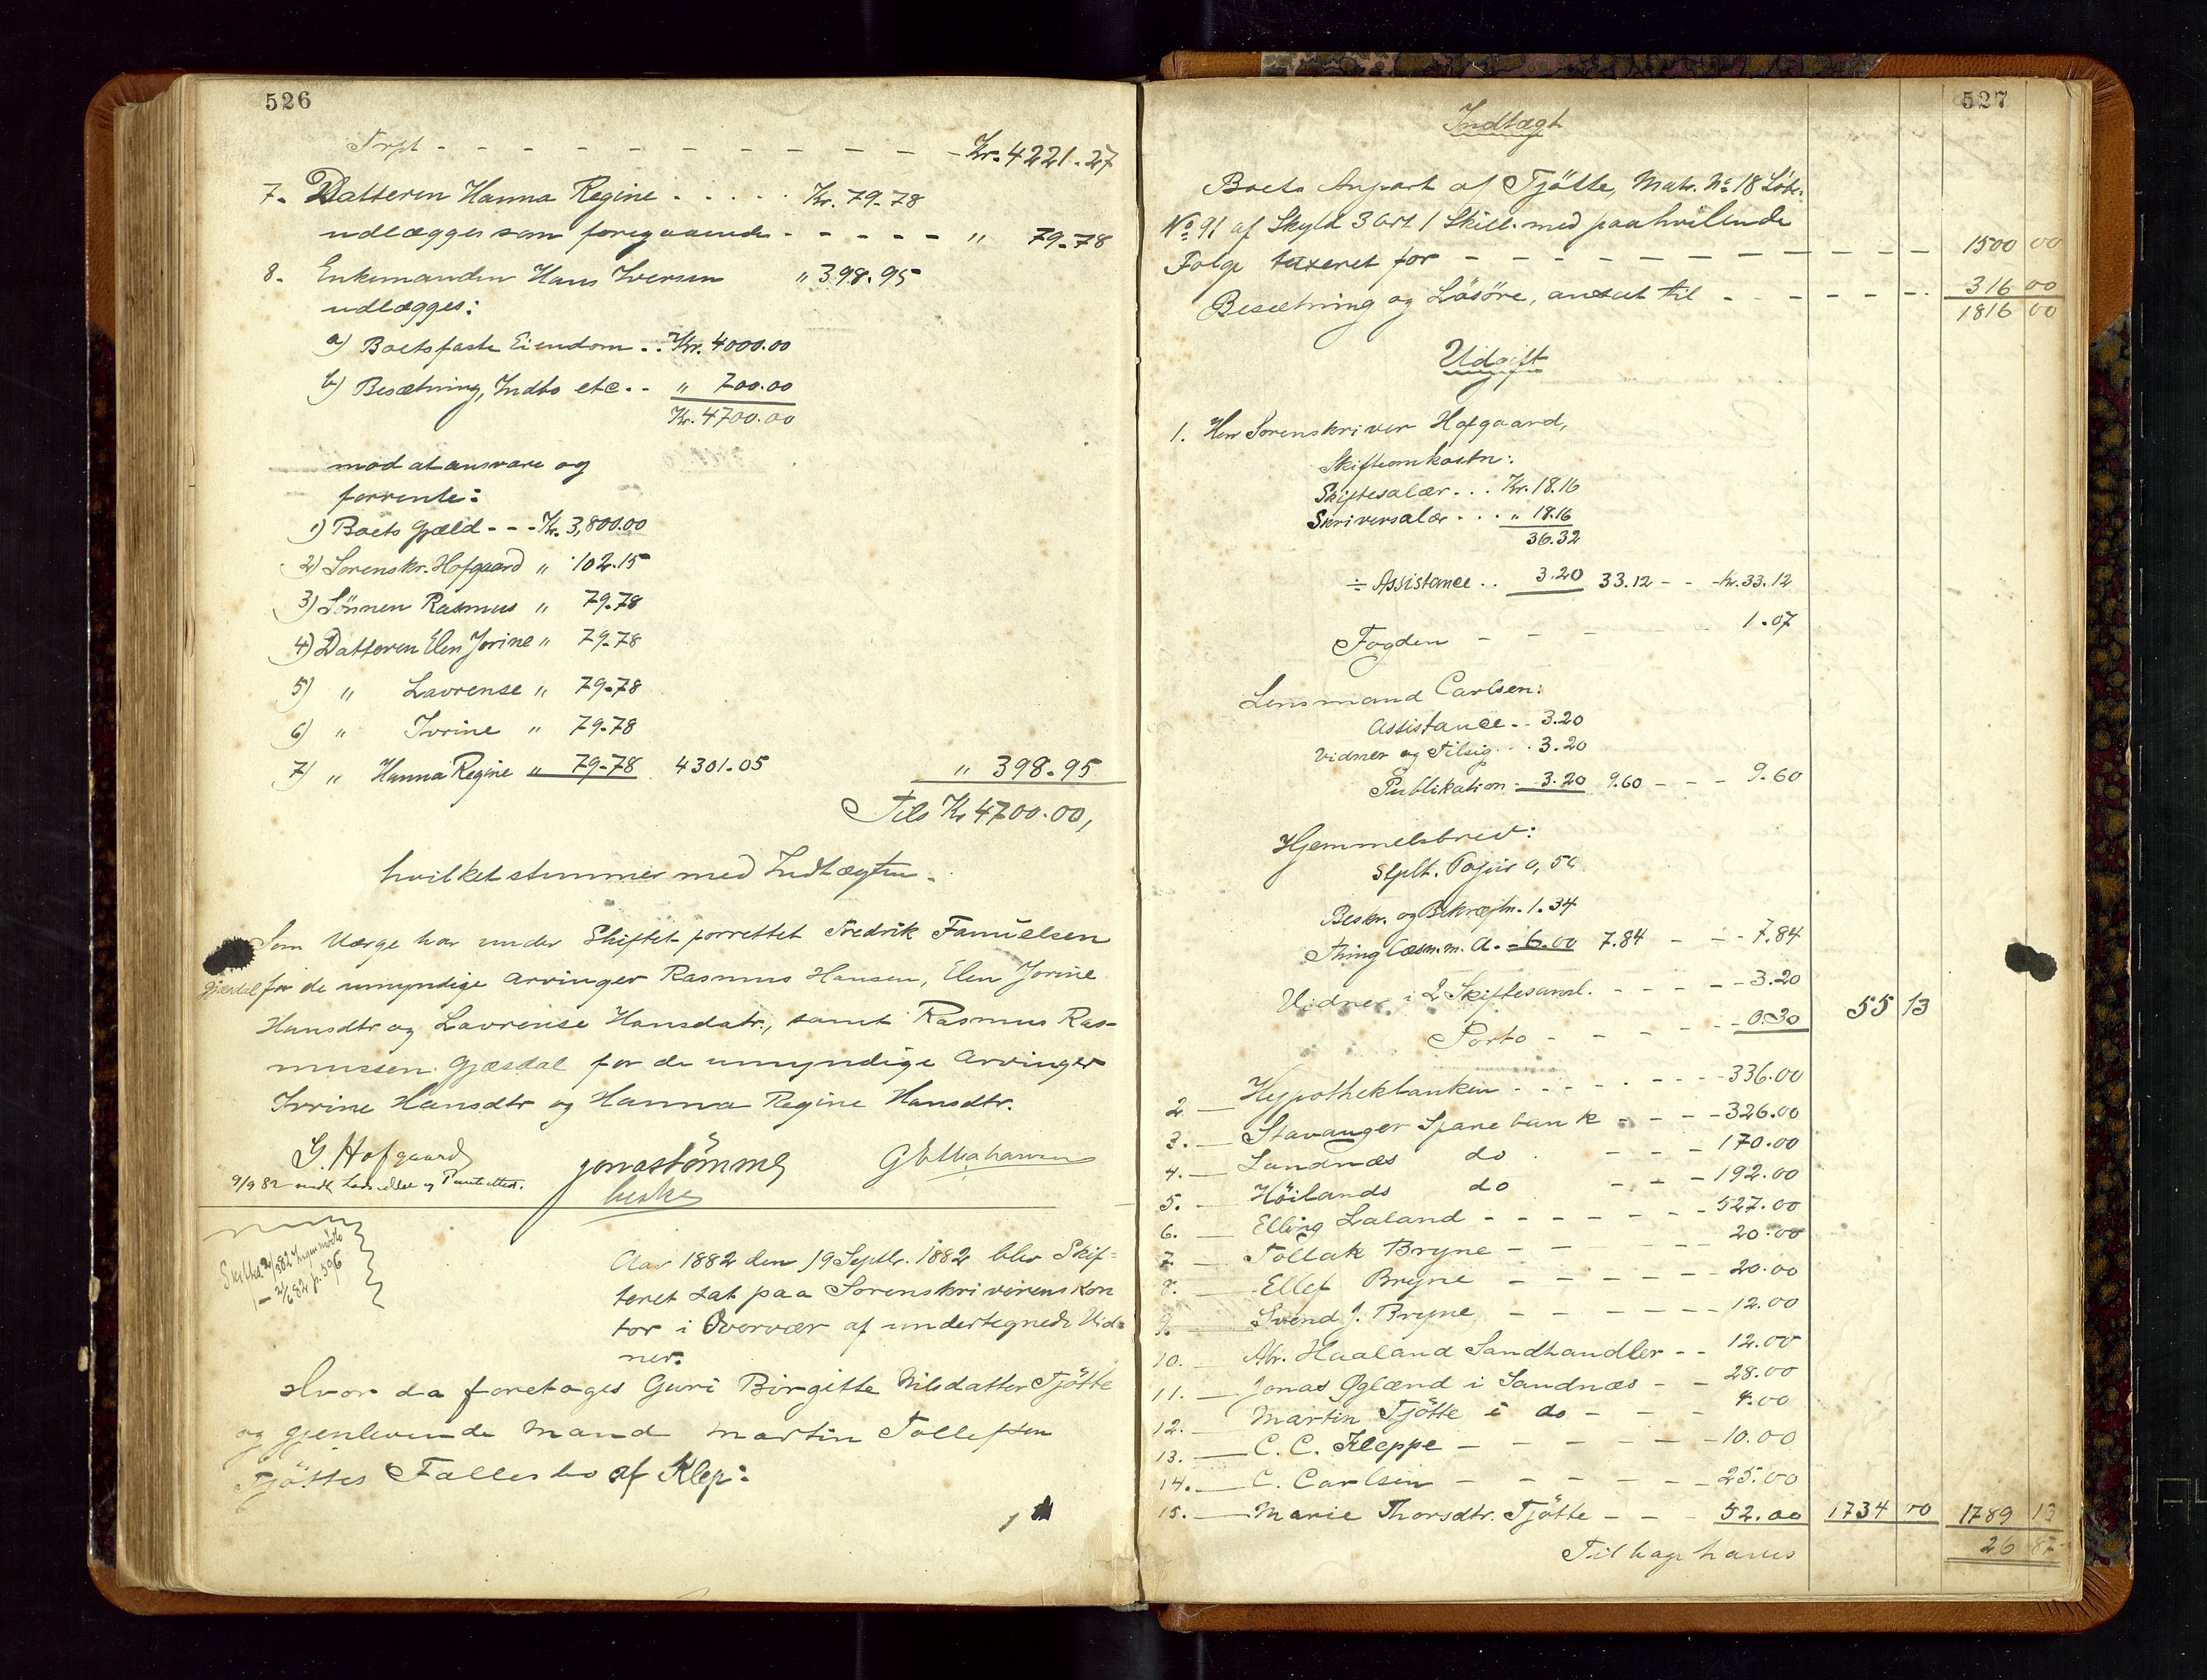 526
Trpt - - - - - - - - - - - Kr. 4221.27
7. Datteren Hanna Regine . . . . . Kr. 79.78
udlægges som foregaaende - - - - - " 79.78
8. Enkemanden Hans Iversen " 398.95
udlægges:
a) Boets faste Eiendom . . Kr. 4000.00
b) Besætning, Indbo etc. . " 700.00
Kr. 4700.00
mod at ansvare og
forrente:
1) Boets Gjæld - - - Kr. 3,800.00
2) Sorenskr. Hofgaard " 102.15
3) Sönnen Rasmus " 79.78
4) Datteren Elen Jorine " 79.78
5) " Lavrense " 79.78
6) " Ivrine " 79.78
7) " Hanna Regine " 79.78 4301.05 " 398.95
Tils Kr 4700.00,
hvilket stemmer med Indtægten.
Som Værge har under Skiftet forrettet Fredrik Fanuelsen
Gjæsdal for de umyndige Arvinger Rasmus Hansen, Elen Jorine
Hansdtr og Lavrense Hansdatr., samt Rasmus Ras-
mussen Gjæsdal for de umyndige Arvinger
Ivrine Hansdtr og Hanna Regine Hansdtr.
G. Hofgaard Jonas Tömmer
9/9 82
Aar 1882 den 19 Septbr. 1882 blev Skif-
teret sat paa Sorenskriverens Kon
tor i Overvær af undertegnede Vid-
ner.
Hvor da foretages Guri Birgitte Nilsdatter Tjötte
og gjenlevende Mand Martin Tollefsen
Tjöttes Fællesbo af Klep:
527
Indtægt
Boets Anpart af Tjötte, Matr. No 18 Löbe
No 91 af Skyld 3 Ort 1 Skill. med paahvilende
Folge taxeret for - - - - - - - - - - 1500 00
Besætning og Lösöre, ansat til - - - - - - 316 00
1816 00
Udgift
1. Herr Sorenskriver Hofgaard,
Skifteomkostn:
Skiftesalær . . . Kr. 18.16
Skriversalær . . . " 18.16
36.32
÷ Assistance . . 3.20 33.12 - - Kr. 33.12
Fogden - - - 1.07
Lensmand Carlsen:
Assistance . . 3.20
Vidner og Tilsig . . . 3.20
Publikation - 3.20 9.60 - - - 9.60
Hjemmelsbrev:
Stplt. Papir 0,50
Beskr. og Bekræftn. 1.34
Thinglæsn. m. a. - 6.00 7.84 - - - 7.84
Vidner i 2 Skiftesaml. - - - - - 3.20
Porto - - - - - 0.30 55 13
2 — Hypothekbanken - - - - - - - 336.00
3. — Stavanger Sparebank - - - - 326.00
4. — Sandnæs do - - - 170.00
5. — Höilands do - - - 192.00
6. — Elling Laland - - - - - - - 527.00
7 — Tollak Bryne - - - - 20.00
8. — Ellef Bryne - - - - - - 20.00
9. — Svend J. Bryne - - - - - - 12.00
10. — Abr. Haaland Sandhandler - - 12.00
11. — Jonas Øglænd i Sandnæs - - 28.00
12. — Martin Tjötte i do - - - 4.00
13. — C. C. Kleppe - - - - - - 10.00
14. — C. Carlsen - - - - - - 25.00
15. — Marie Thorsdtr. Tjötte - - - 52.00 1734 00 1789 13
Tilbage haves 26 87